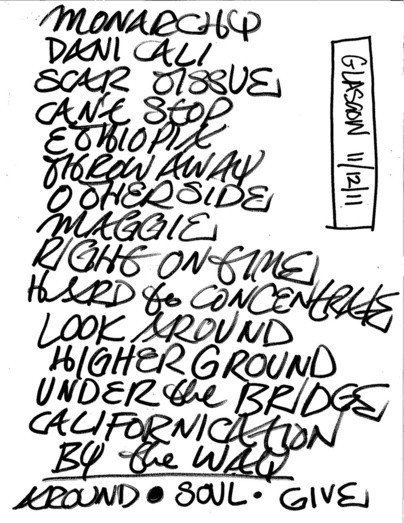 MONARCHY
DANI CALI
SCAR TISSUE
CAN'T STOP
ETHIOPIA
THROW AWAY
OTHERSIDE
MAGGIE
RIGHT ON TIME
HARD to CONCENTRATE
LOOK AROUND
HIGHER GROUND
UNDER the BRIDGE
CALIFORNICATION
BY the WAY
AROUND • SOUL • GIVE
GLASGOW 11/12/11